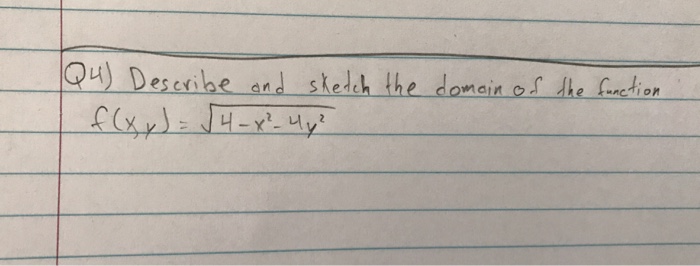 Q4) Describe and sketch the domain of the function
f(x,y) = √4-x²-4y²